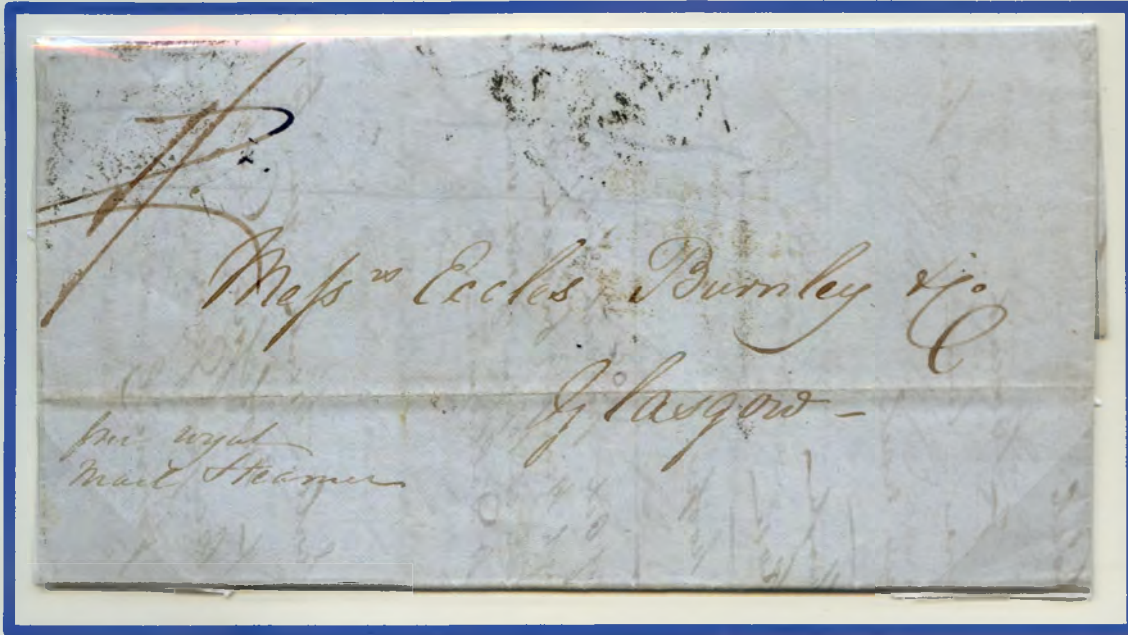 Messrs Eccles, Burnley & Co
Glasgow -
per royal
mail Steamer